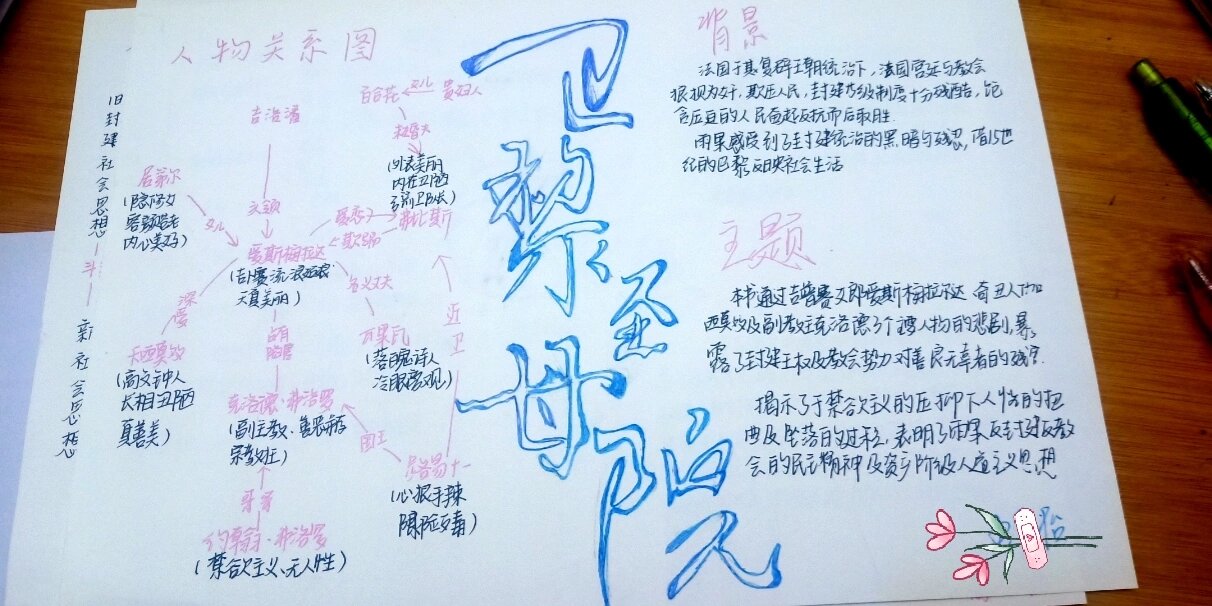 人物关系图
旧封建社会思想—斗—新社会思想
百合花 女儿 贵妇人
吉治潘
未婚夫
(外表美丽
内在丑陋
居第尔
(隐修女
内心美好)
女儿
首领
弗比斯
欺骗
爱斯梅拉达
(吉卜赛流浪姑娘
天真美丽)
名义丈夫
深爱
卡西莫多
(敲钟人
长相丑陋
真善美)
万果瓦
(落魄诗人
冷眼旁观)
近卫
克洛德·弗洛罗
(副主教、
国王
路易十一
(心狠手辣
阴险歹毒)
哥哥
约翰·弗洛罗
(禁欲主义、无人性)
巴黎圣母院
背景
法国于其复辟王朝统治下,法国宫廷与教会
狼狈为奸,欺压人民,封建等级制度十分残酷,饱
含压迫的人民奋起反抗而后取胜.
雨果感受到了封建统治的黑暗与残忍,借15世
纪的巴黎反映社会生活
主题
本书通过吉普赛女郎爱斯梅拉达 奇丑人加
西莫多及副教主克洛德3个 人物的悲剧,暴
露了封建王权及教会势力对善良无辜者的残害.
揭示了于禁欲主义的压抑下人性的扭
曲及坠落的过程,表明了雨果反封建反教
会的民主精神及资产阶级人道主义思想